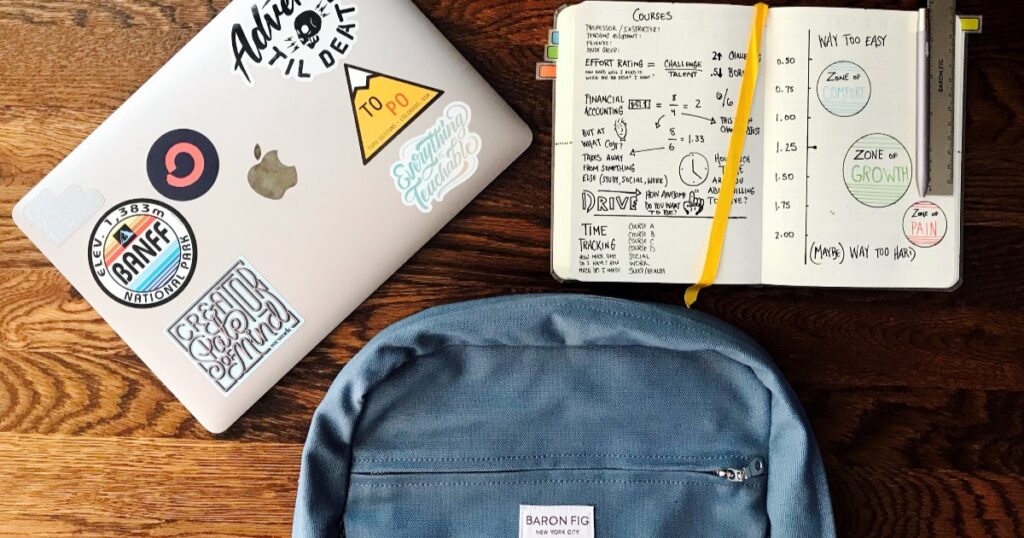 Adven
'TIL DEAT
TO
PO
TOPO DESIGNS, COLORADO, USA
Everything
is
Teachable
ELEV. 1,383m
BANFF
NATIONAL PARK
CREATOR
OF
MIND
COURSES
PROFESSOR / INSTRUCTOR:
TEACHING ASSISTANT:
FRIENDS:
STUDY GROUP:
EFFORT RATING = CHALLENGE
TALENT
2↑ CHALLEN
.5↓ BOR
FINANCIAL
ACCOUNTING
= 8/4 = 2
6/6
BUT AT
WHAT COST?
8/6 = 1.33
TAKES AWAY
FROM SOMETHING
ELSE (STUDY, SOCIAL, WORK)
DRIVE
HOW AWESOME
DO YOU WANT
TO BE?
TIME
TRACKING
COURSE A
COURSE B
COURSE C
COURSE D
SOCIAL
WORK
SLEEP/HEALTH
HOW MUCH TIME
DO I HAVE? HOW
MUCH DO I NEED?
WAY TOO EASY
0.50
0.75
1.00
1.25
1.50
1.75
2.00
ZONE OF
COMFORT
ZONE OF
GROWTH
ZONE OF
PAIN
(MAYBE) WAY TOO HARD
BARON FIG
BARON FIG
NEW YORK CITY